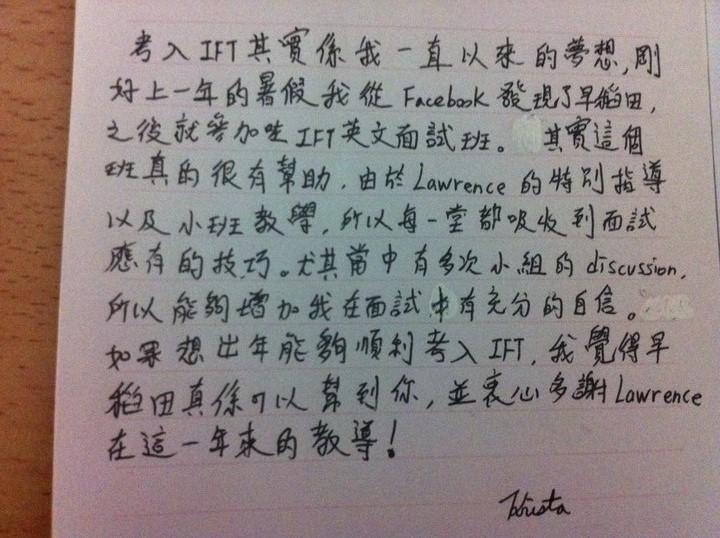 考入IFT其實係我一直以來的夢想,剛
好上一年的暑假我從Facebook發現了早稻田,
之後就參加咗IFT英文面試班。其實這個
班真的很有幫助,由於Lawrence的特別指導
以及小班教學,所以每一堂都吸收到面試
應有的技巧。尤其當中有多次小組的discussion,
所以能夠增加我在面試中有充分的自信。
如果想出年能夠順利考入IFT,我覺得早
稻田真係可以幫到你,並衷心多謝Lawrence
在這一年來的教導!
Krista